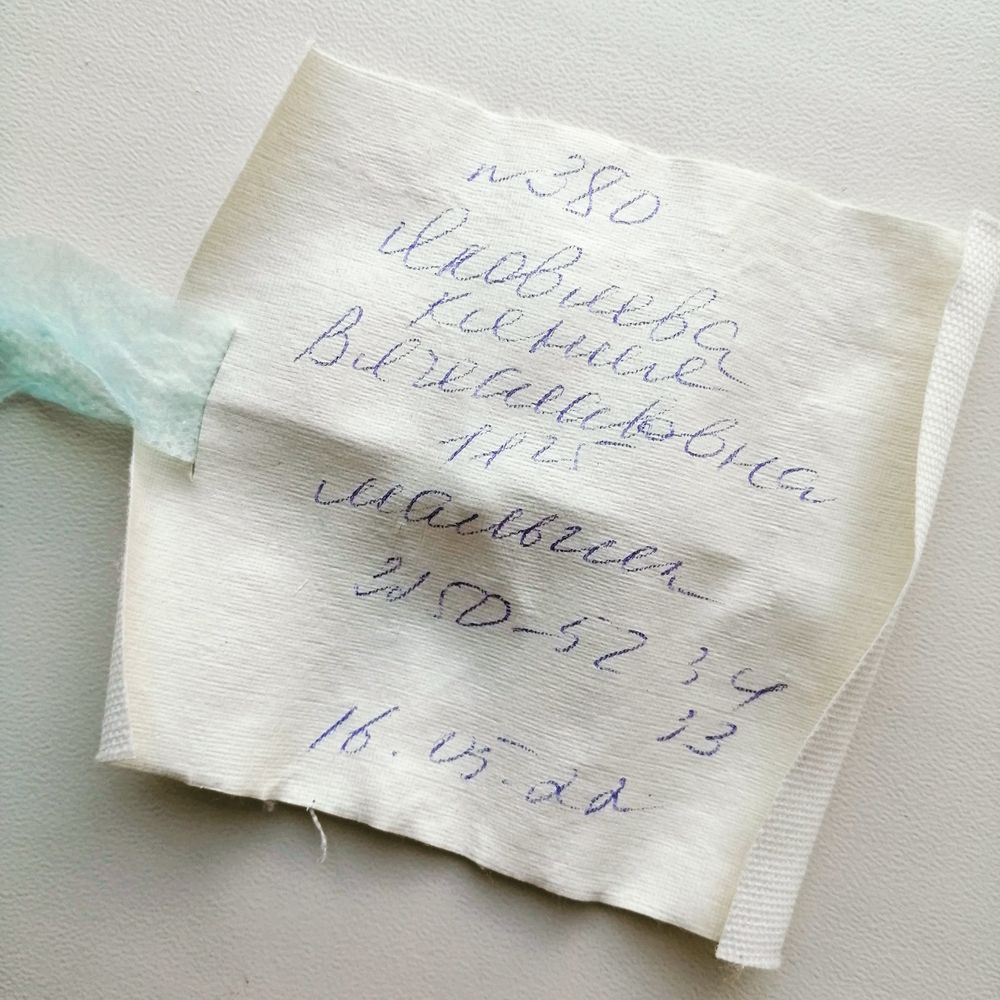 №380
Яковлева
Ксения
Вячеславовна
1825
мальчик
3150-52 34
33
16.05.22